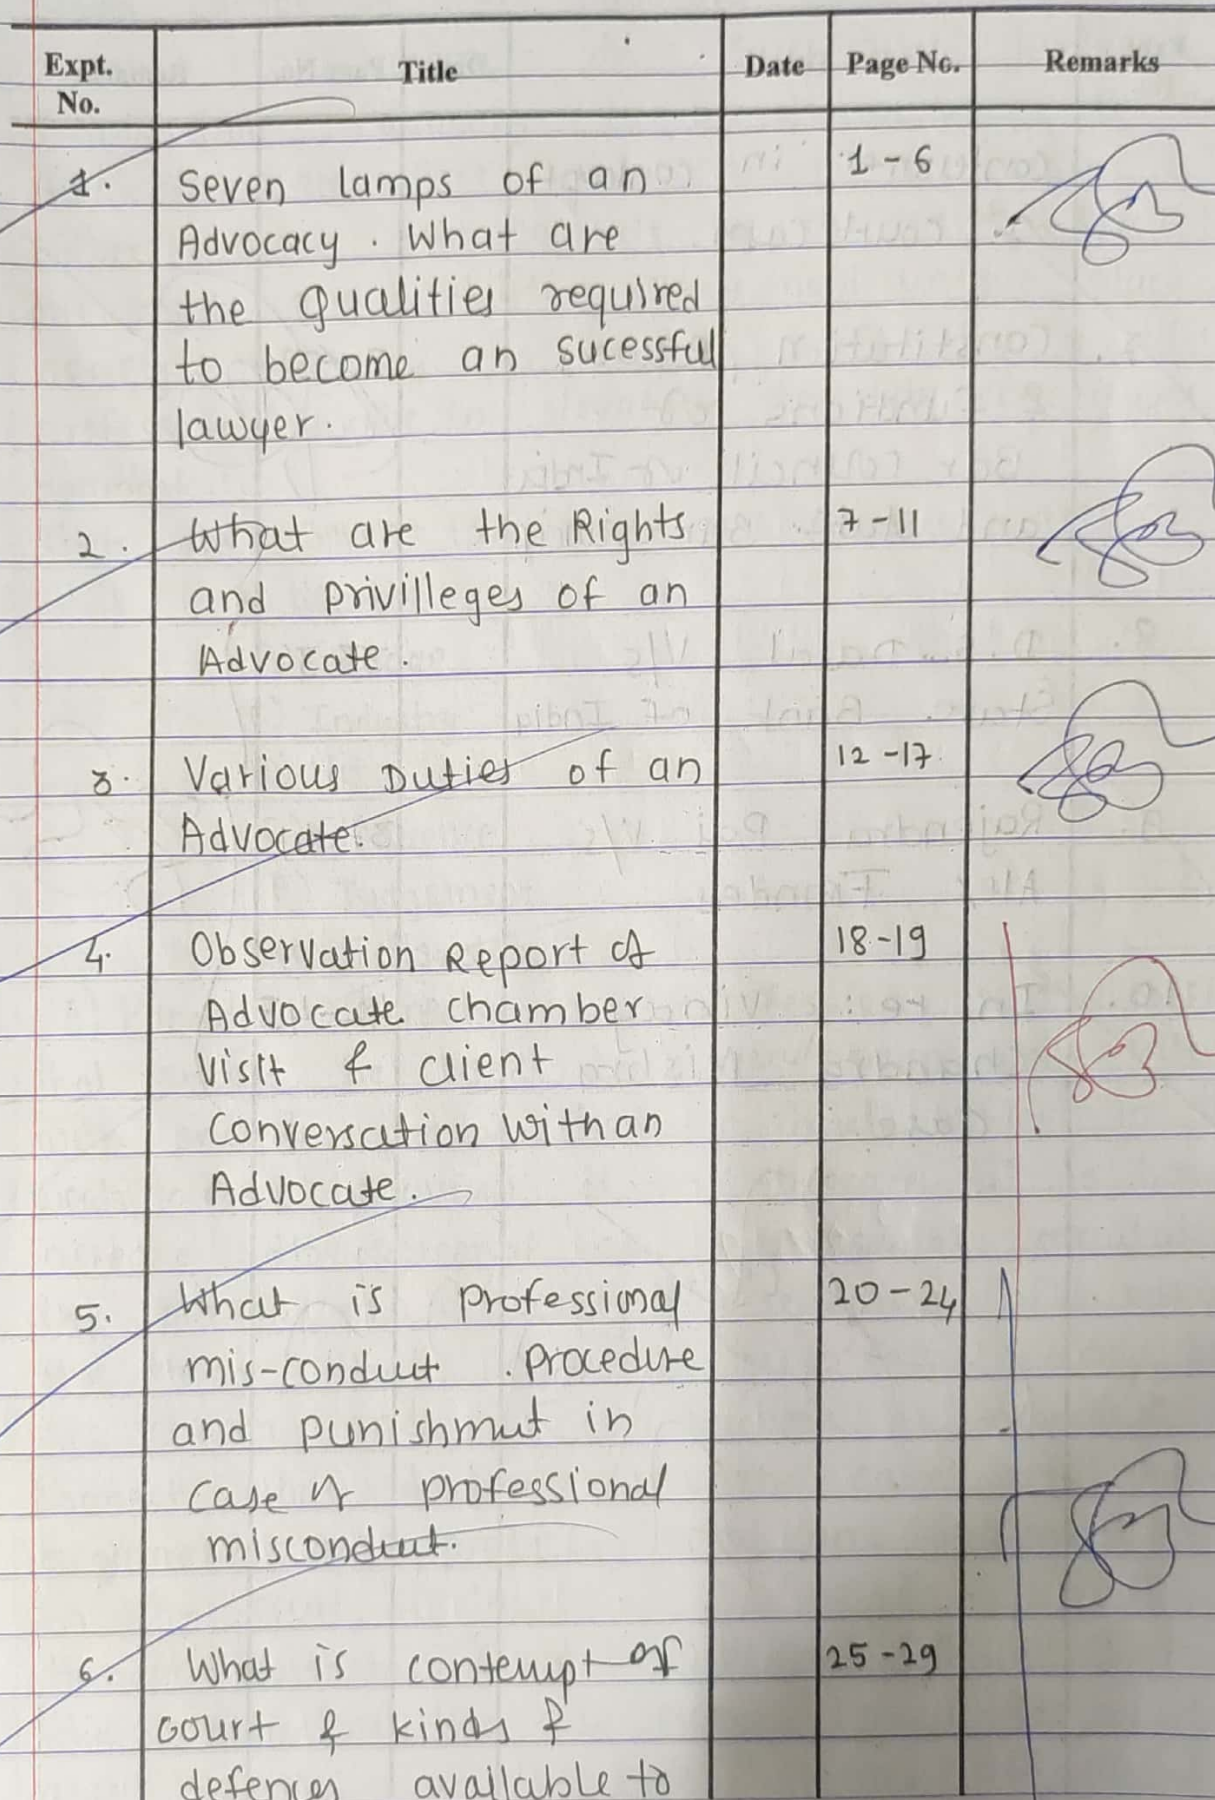 Expt. No. Title Date Page No. Remarks
1. Seven lamps of an 1-6
Advocacy. What are
the qualities required
to become an sucessful
lawyer.
2. What are the Rights 7-11
and privilleges of an
Advocate.
3. Various Duties of an 12-17
Advocate.
4. Observation Report of 18-19
Advocate chamber
visit & client
conversation with an
Advocate.
5. What is professional 20-24
mis-conduct. procedure
and punishment in
case of professional
misconduct.
6. What is contempt of 25-29
court & kinds &
defences available to